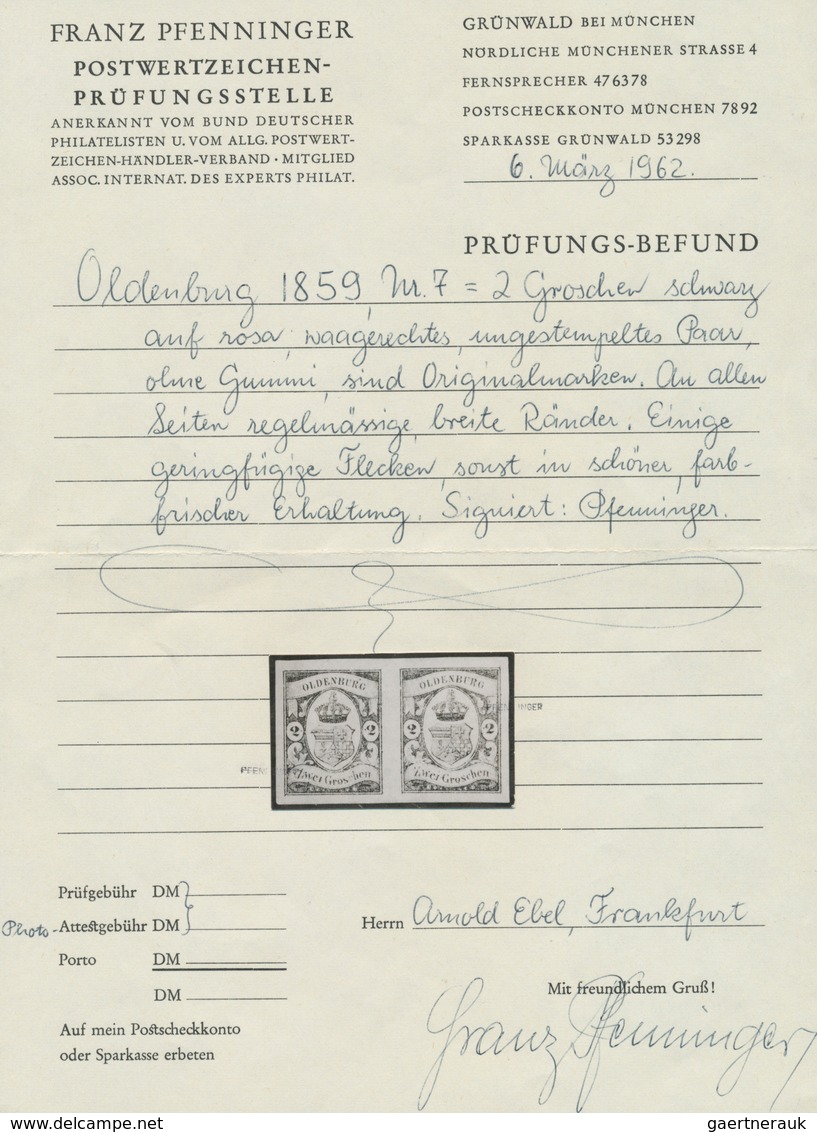 FRANZ PFENNINGER
POSTWERTZEICHEN-
PRÜFUNGSSTELLE
ANERKANNT VOM BUND DEUTSCHER
PHILATELISTEN U. VOM ALLG. POSTWERT-
ZEICHEN-HÄNDLER-VERBAND · MITGLIED
ASSOC. INTERNAT. DES EXPERTS PHILAT.
GRÜNWALD BEI MÜNCHEN
NÖRDLICHE MÜNCHENER STRASSE 4
FERNSPRECHER 476378
POSTSCHECKKONTO MÜNCHEN 7892
SPARKASSE GRÜNWALD 53298
6. März 1962.
PRÜFUNGS-BEFUND
Oldenburg 1859, Nr. 7 = 2 Groschen schwarz
auf rosa, waagerechtes, ungestempeltes Paar,
ohne Gummi, sind Originalmarken. An allen
Seiten regelmässige, breite Ränder. Einige
geringfügige Flecken, sonst in schöner, farb-
frischer Erhaltung. Signiert: Pfenninger.
OLDENBURG OLDENBURG
PFENNINGER
2 2 2 2
PFEN
Zwei Groschen Zwei Groschen
Prüfgebühr DM
Photo-Attestgebühr DM
Porto DM
DM
Auf mein Postscheckkonto
oder Sparkasse erbeten
Herrn Arnold Ebel, Frankfurt
Mit freundlichem Gruß!
Franz Pfenninger
www.delcampe.net
gaertnerauk